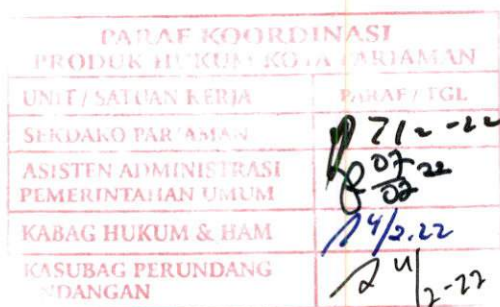 PARAF KOORDINASI
PRODUK HUKUM KOTA PARIAMAN
UNIT / SATUAN KERJA PARAF / TGL
SEKDAKO PARIAMAN 7/2-22
ASISTEN ADMINISTRASI
PEMERINTAHAN UMUM 07/02 22
KABAG HUKUM & HAM 4/2.22
KASUBAG PERUNDANG
NDANGAN 4/2-22